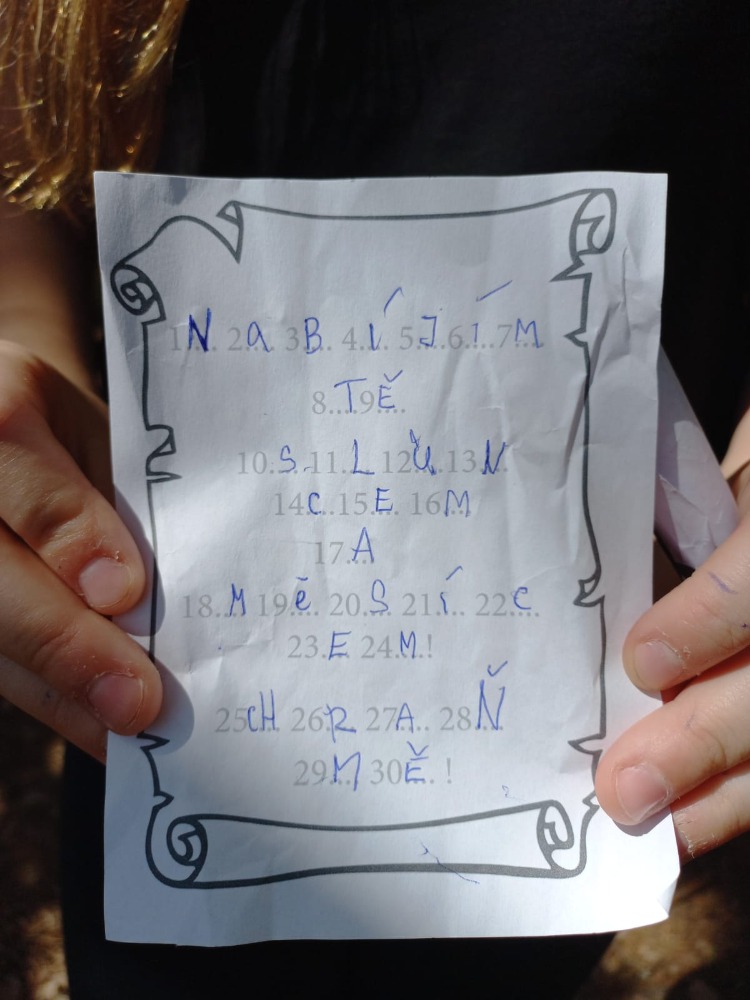 1. N 2. a 3. B 4. í 5. J 6. í 7. M
8. T 9. Ě
10. S 11. L 12. Ů 13. N
14. C 15. E 16. M
17. A
18. M 19. ě 20. S 21. í 22. c
23. E 24. M !
25. CH 26. R 27. A 28. Ň
29. M 30. Ě !